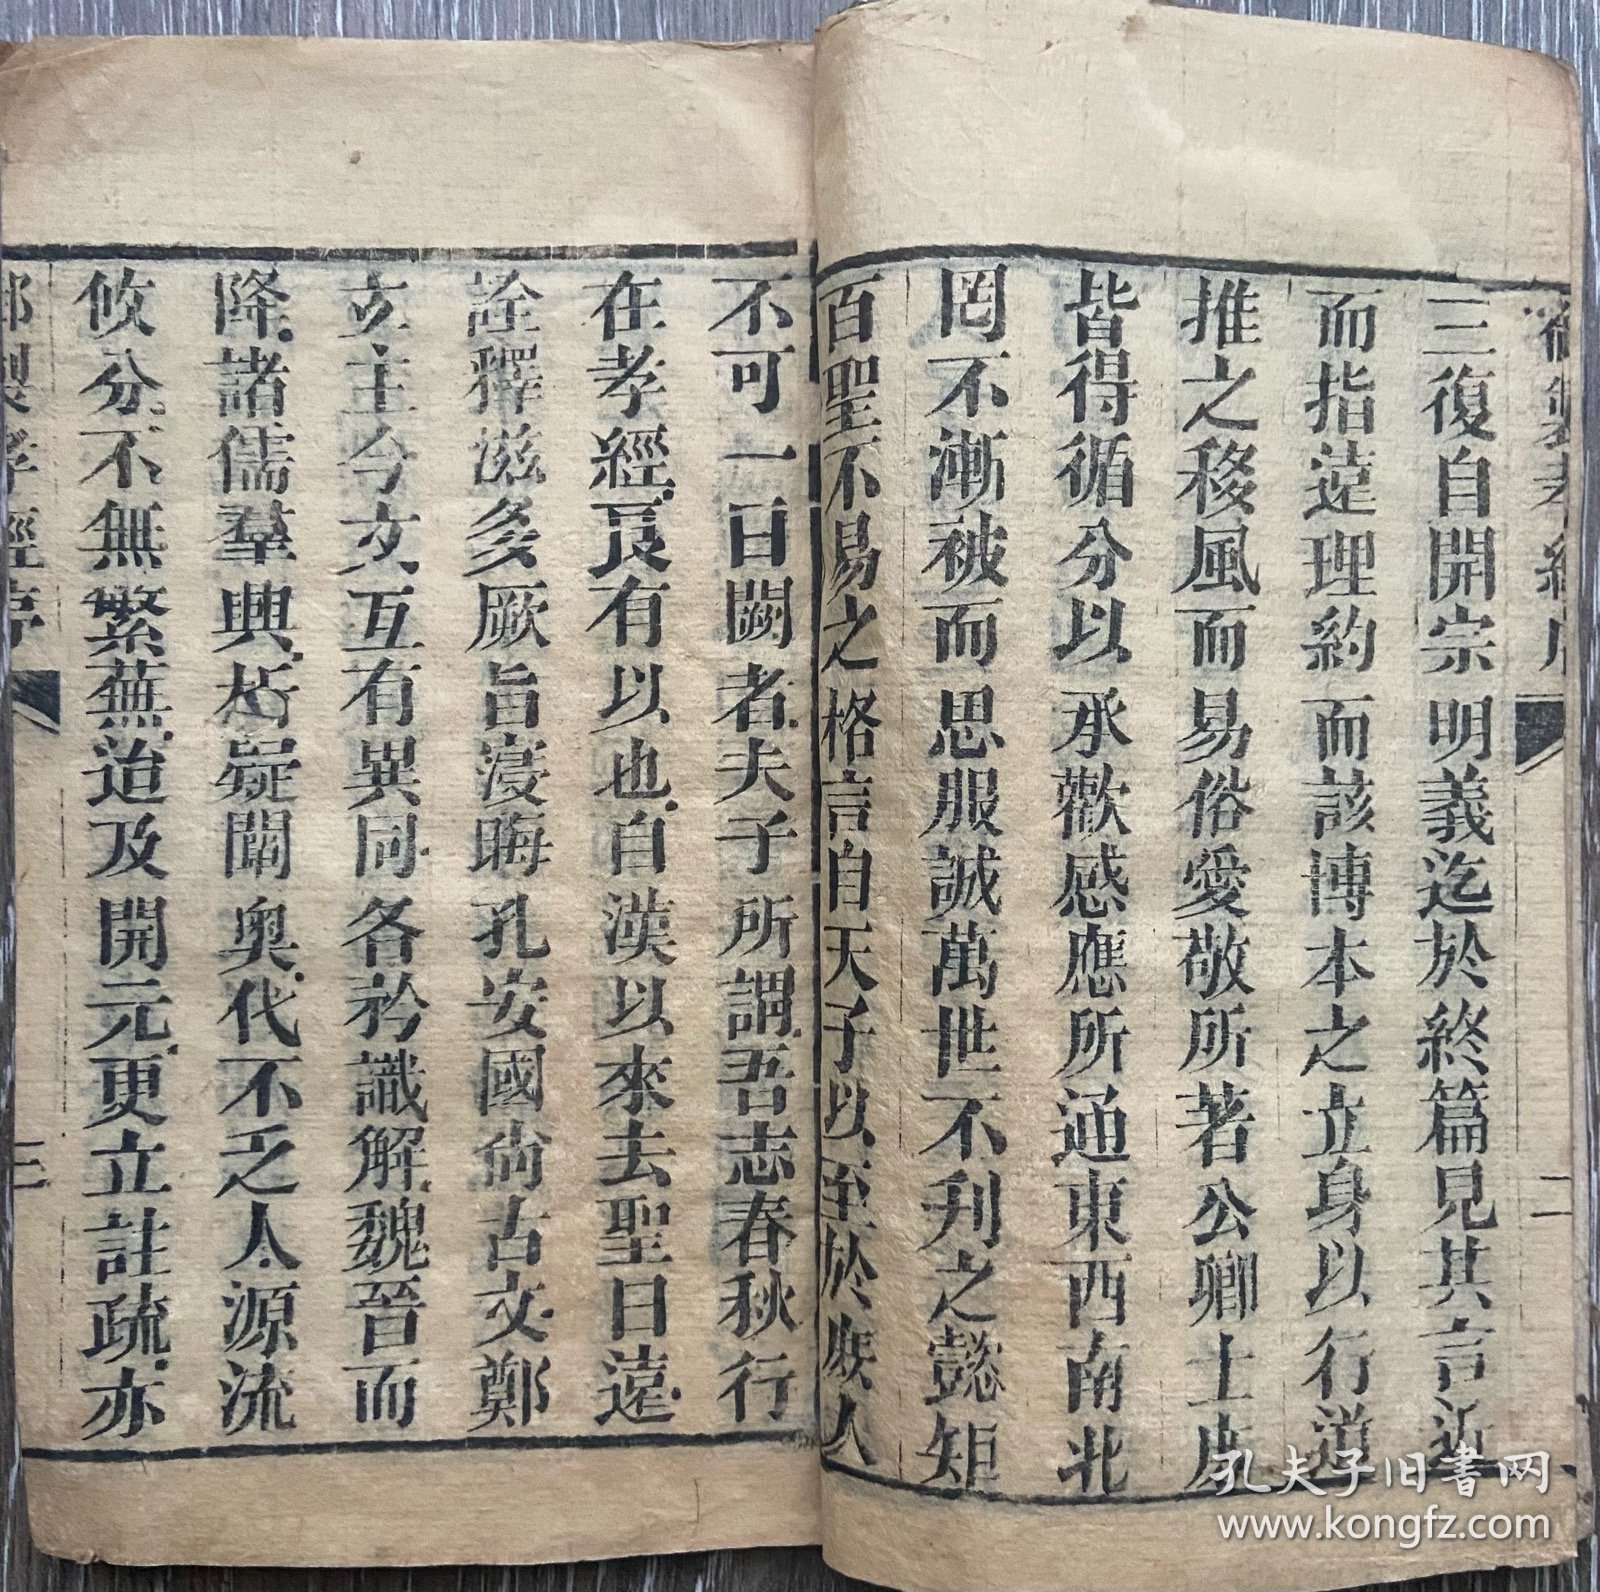 御製孝經序
二
三復自開宗明義迄於終篇見其言近
而指遠理約而該博本之立身以行道
推之移風而易俗愛敬所著公卿士庶
皆得循分以承歡感應所通東西南北
罔不漸被而思服誠萬世不刋之懿矩
百聖不易之格言自天子以至於庶人
不可一日闕者夫子所謂吾志春秋行
在孝經良有以也自漢以來去聖日遠
詮釋滋多厥旨寖晦孔安國尚古文鄭
玄主今文互有異同各矜識解魏晉而
降諸儒羣興析疑闡奧代不乏人源流
攸分不無繁蕪迨及開元更立註疏亦
御製孝經序
三
孔夫子旧書网
www.kongfz.com